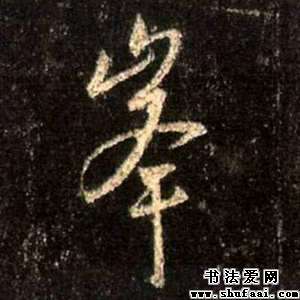 峯
书法爱网
www.shufaai.com